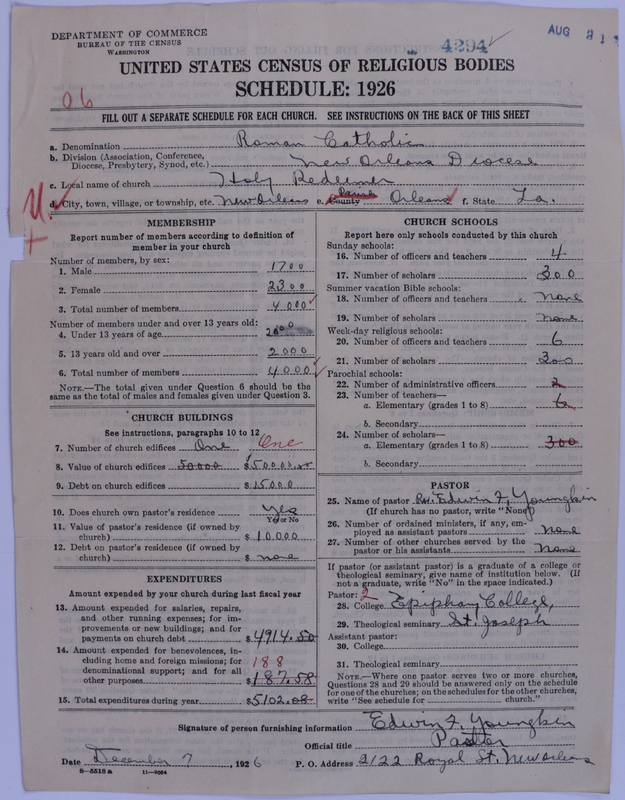 DEPARTMENT OF COMMERCE
BUREAU OF THE CENSUS
WASHINGTON
4294
AUG 31
UNITED STATES CENSUS OF RELIGIOUS BODIES
SCHEDULE: 1926
06
FILL OUT A SEPARATE SCHEDULE FOR EACH CHURCH. SEE INSTRUCTIONS ON THE BACK OF THIS SHEET
a. Denomination Roman Catholic
b. Division (Association, Conference, Diocese, Presbytery, Synod, etc.) New Orleans Diocese
c. Local name of church Holy Redeemer
d. City, town, village, or township, etc. New Orleans e. County Orleans f. State La.
U.
MEMBERSHIP
Report number of members according to definition of member in your church
Number of members, by sex:
1. Male 1700
2. Female 2300
3. Total number of members 4000
Number of members under and over 13 years old:
4. Under 13 years of age 2000
5. 13 years old and over 2000
6. Total number of members 4000
NOTE.—The total given under Question 6 should be the same as the total of males and females given under Question 3.
CHURCH BUILDINGS
See instructions, paragraphs 10 to 12
7. Number of church edifices One One
8. Value of church edifices 50000 $50000.00
9. Debt on church edifices $15000
10. Does church own pastor's residence Yes
Yes or No
11. Value of pastor's residence (if owned by church) $10000
12. Debt on pastor's residence (if owned by church) $ none
EXPENDITURES
Amount expended by your church during last fiscal year
13. Amount expended for salaries, repairs, and other running expenses; for improvements or new buildings; and for payments on church debt $4914.50
14. Amount expended for benevolences, including home and foreign missions; for denominational support; and for all other purposes 188 $187.58
15. Total expenditures during year $5102.08
CHURCH SCHOOLS
Report here only schools conducted by this church
Sunday schools:
16. Number of officers and teachers 4
17. Number of scholars 300
Summer vacation Bible schools:
18. Number of officers and teachers None
19. Number of scholars None
Week-day religious schools:
20. Number of officers and teachers 6
21. Number of scholars 300
Parochial schools:
22. Number of administrative officers 2
23. Number of teachers—
a. Elementary (grades 1 to 8) 6
b. Secondary
24. Number of scholars—
a. Elementary (grades 1 to 8) 300
b. Secondary
PASTOR
25. Name of pastor Rev. Edwin F. Youngkin
(If church has no pastor, write "None")
26. Number of ordained ministers, if any, employed as assistant pastors None
27. Number of other churches served by the pastor or his assistants None
If pastor (or assistant pastor) is a graduate of a college or theological seminary, give name of institution below. (If not a graduate, write "No" in the space indicated.)
Pastor: 2
28. College Epiphany College,
29. Theological seminary St. Joseph
Assistant pastor:
30. College
31. Theological seminary
NOTE.—Where one pastor serves two or more churches, Questions 28 and 29 should be answered only on the schedule for one of the churches; on the schedules for the other churches, write "See schedule for ______ church."
Signature of person furnishing information Edwin F. Youngkin
Official title Pastor
Date December 7, 1926 P. O. Address 2122 Royal St. New Orleans
8—5518a 11—9064